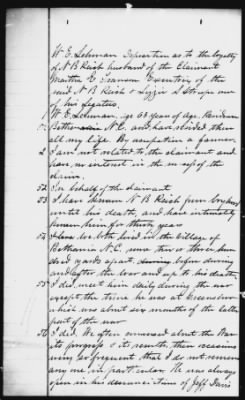 W E Lehman Deposition as to the loyalty
of N B Reich husband of the Claimant
Martha E Transou Executrix of the
said N B Reich & Lizzie S Stroupe one
of his legatees.
W E Lehman, age 63 years of age, Residence
Bethania N.C. and have resided there
all my life By occupation a farmer,
I am not related to the claimant and
have no interest in the success of the
claim.
52 In behalf of the claimant.
53 I have known N B Reich from boyhood
until his death, and have intimately
known him for thirty years.
54 I lived in the village of
Bethania N.C. some two or three hun
dred yards apart. during before during
and after the war and up to his death
55 I did, meet him daily during the war
except the time he was at Greensboro
which was about six months of the latter
part of the war
56 I did. We often conversed about the War
its progress & its results, these occasions
were so frequent that I do not remem
any one in particular. He was always
open in his denunciation of Jeff Davis